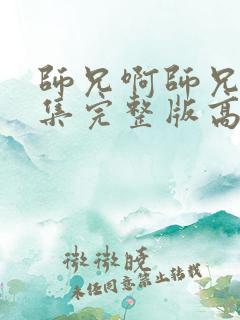 師兄啊師兄
集完整版高
微微晚
未经同意禁止转载